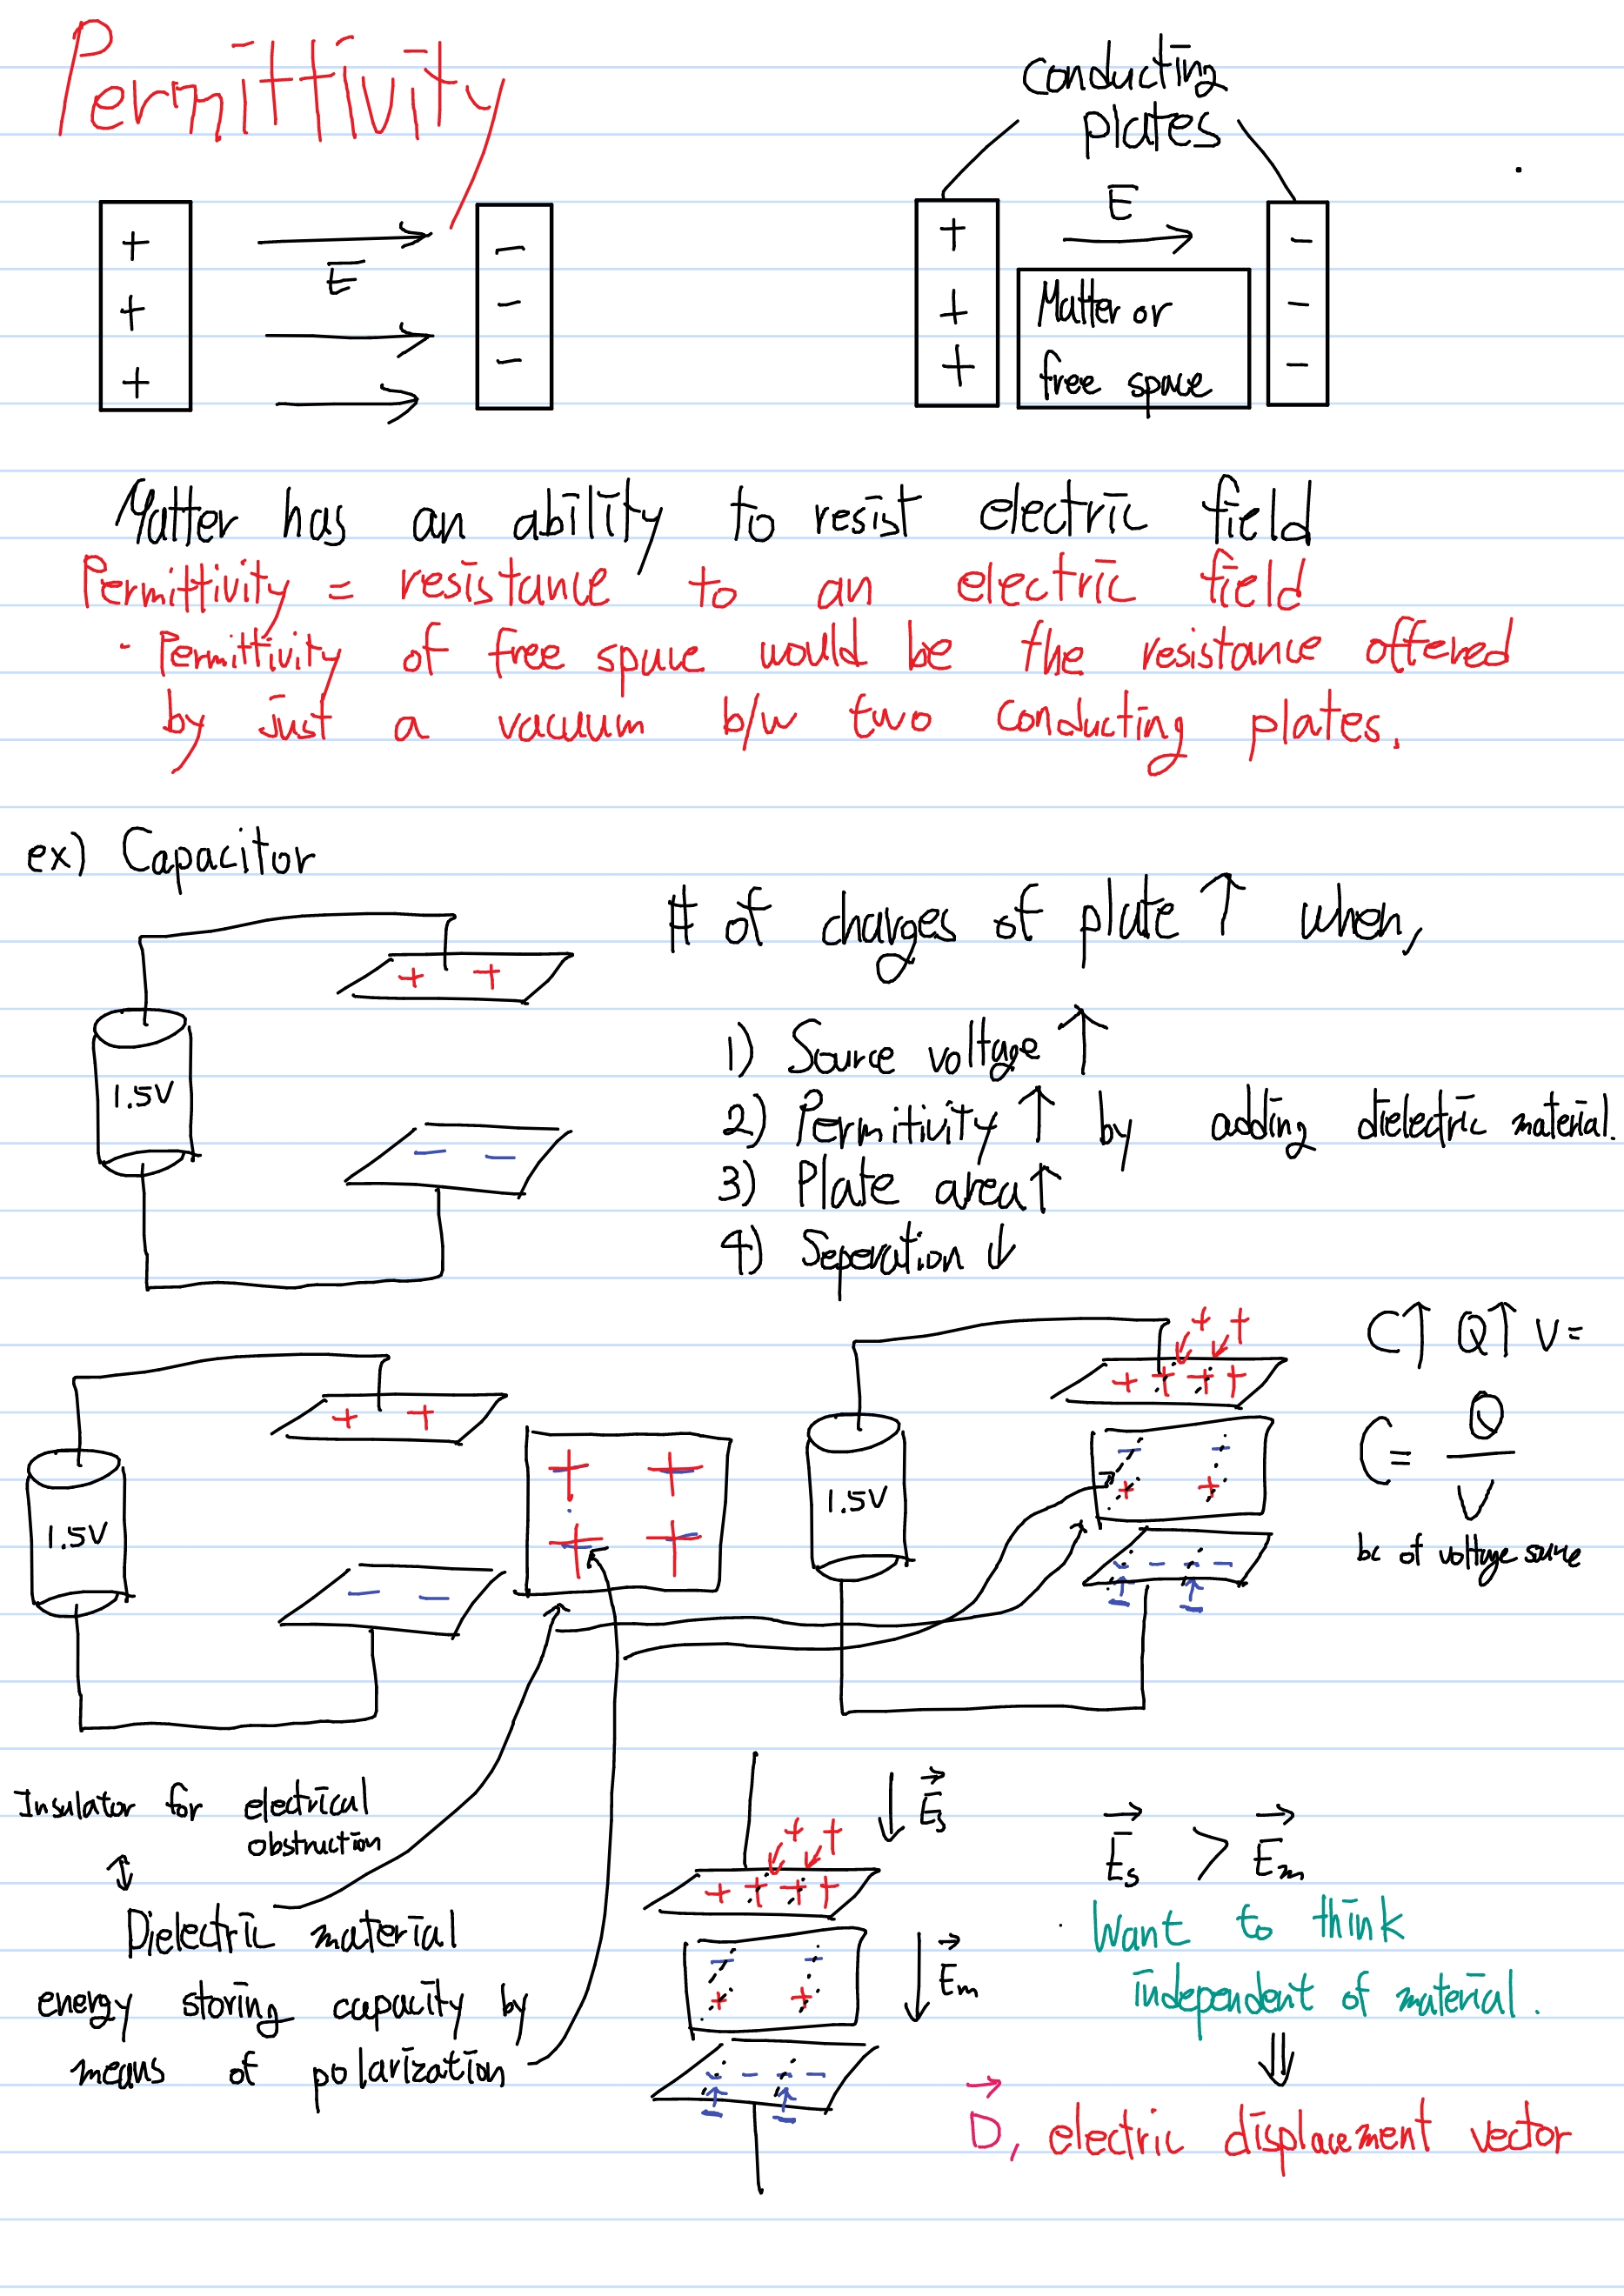 Permittivity
Conducting
plates
+ E -
+ -
+ -
+ E -
+ Matter or -
+ free space -
Matter has an ability to resist electric field
Permittivity = resistance to an electric field
- Permittivity of free space would be the resistance offered
by just a vacuum b/w two conducting plates.
ex) Capacitor
# of charges of plate ↑ when,
+ +
1.5V
- -
1) Source voltage ↑
2) Permitivity ↑ by adding dielectric material.
3) Plate area ↑
4) Seperation ↓
+ +
1.5V
- -
+ +
+ +
+ +
+ + + +
1.5V
- -
+ +
- - - -
C↑ Q↑ V=
C = Q/V
bc of voltage source
Insulator for electrical
obstruction
↕
Dielectric material
energy storing capacity by
means of polarization
+ +
+ + + +
- -
+ +
- - - -
↓ E⃗s
↓ E⃗m
E⃗s > E⃗m
Want to think
independent of material.
⇓
D⃗, electric displacement vector